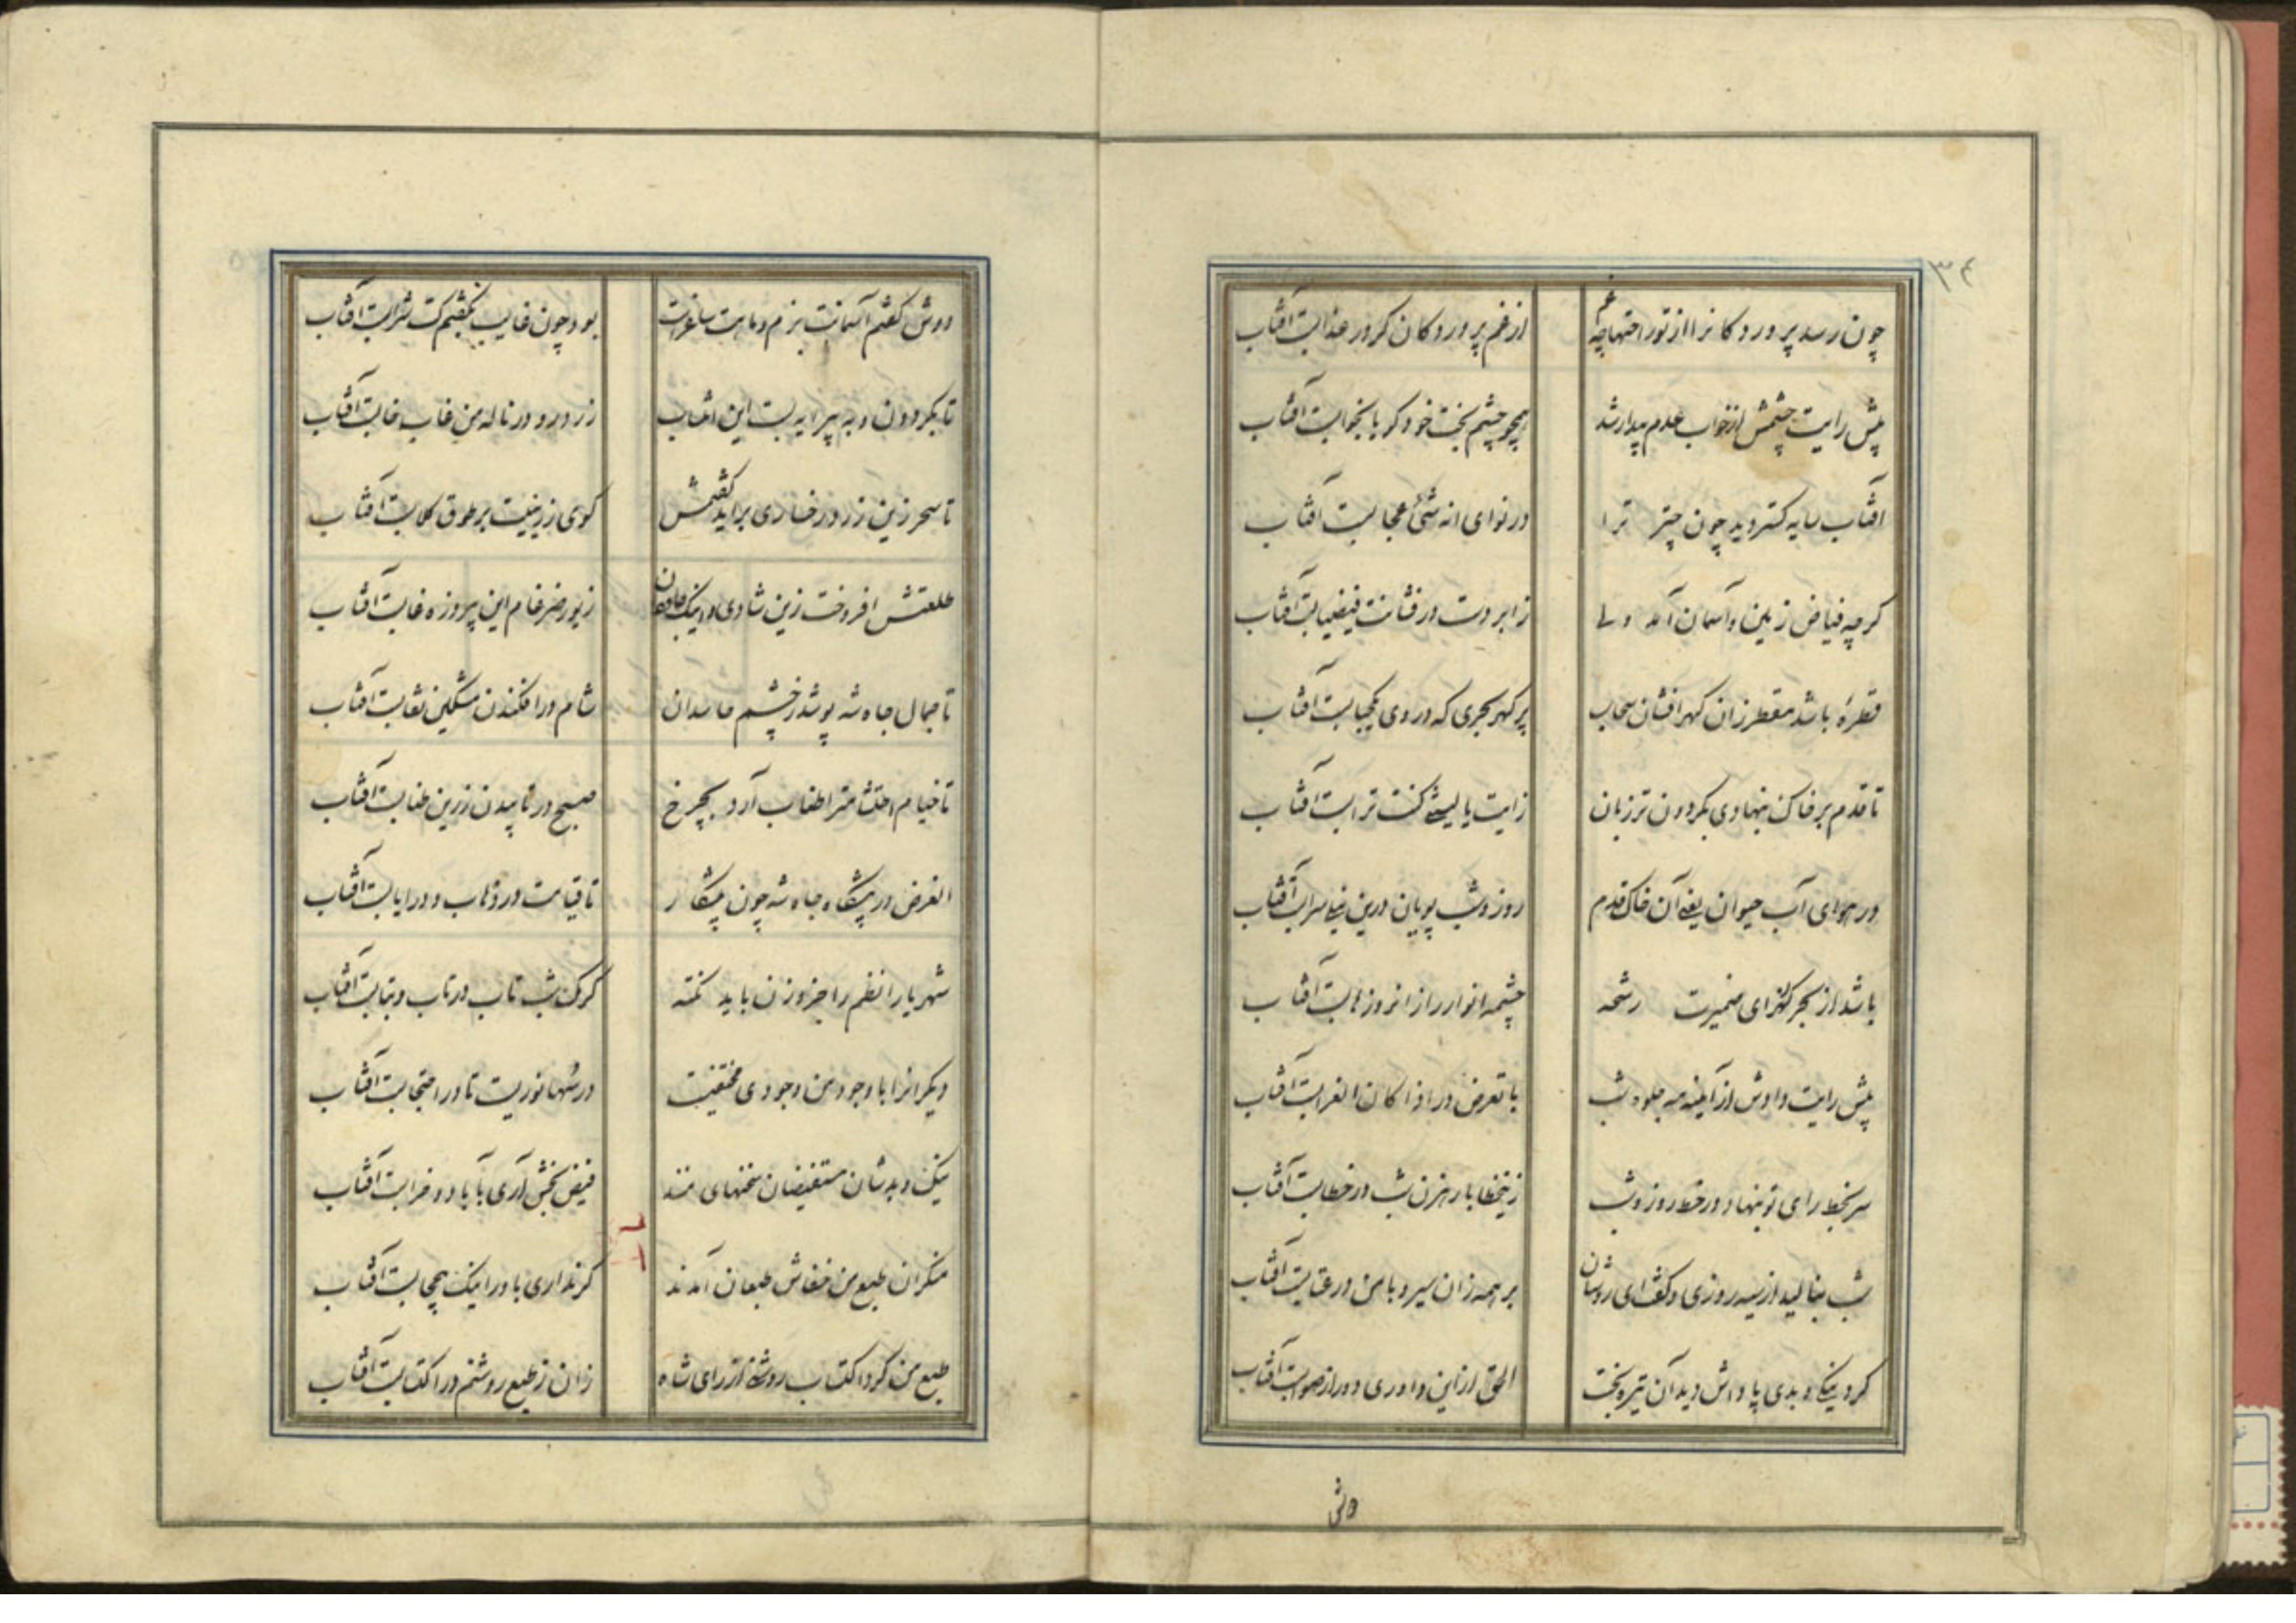 ۳۴
چون رسد پروردگانرا از تو راحتها چه غم از غم پروردگان کر در عذابست آفتاب
پیش رایت چشمش از خواب عدم بیدار شد همچو چشم بخت خود کر با بخوابست آفتاب
آفتاب سایه کستر دید چون چتر ترا در نوای انه شیٔ عجابست آفتاب
کرچه فیاض زمین و آسمان آمد ولی ز ابر دست در فشانت فیضیابست آفتاب
قطرهٔ باشد مقطر زان کهر افشان سحاب پر کهر بحری که در وی یکحبابست آفتاب
تا قدم بر خاک بنهادی بکردون تر زبان ز ایت یا لیتنی کنت ترابست آفتاب
در هوای آب حیوان یعنی آن خاک قدم روز و شب پویان درین نیلی سرابست آفتاب
باشد از بحر کهرزای ضمیرت رشحه چشمه انوار راز انروز نابست آفتاب
پیش رایت دادش از آینه مه جلوه شب با تعرض در اذا کان الغرابست آفتاب
سر بخط رای تو بنهاد در خط روز و شب زینخطا با رهزن شب در خطابست آفتاب
شب بنالید از سیه روزی و کفت ای روشنان بر همه زان سیر و با من در عتابست آفتاب
کرد نیکی و بدی پاداش دید آن تیره بخت الحق از این داوری دور از صوابست آفتاب
دوش
دوش کفتم آسمانت بزم و ماهت ساغرست بود چون غایب نکفتم کت شرابست آفتاب
تا بکردون و به پیرایه بست این انتخاب زرد رو در ناله من غاب خابست آفتاب
تا سحر زین زرد رخساری براید کفتمش کوی زرینیست بر طوق کلابست آفتاب
طلعتش افروخت زین شادی و اینک جاودان زیور ضرغام این پیروزه غابست آفتاب
تا جمال جاه شه پوشد ز چشم حاسدان شام در افکندن مشکین نقابست آفتاب
تا خیام احتشامترا طناب آرد بچرخ صبح در تابیدن زرین طنابست آفتاب
الغرض در پیشکاه جاه شه چون پیشکار تا قیامت در ذهاب و در ایابست آفتاب
شهریارا نظم را جز وزن باید نکته کرمک شب تاب در تاب و بتابست آفتاب
دیکرانرا با وجود من وجودی مختفیست در سها نوریست تا در احتجابست آفتاب
نیک و بدشان مستفیضان سخنهای منند فیض بخش آری بآباد و خرابست آفتاب
منکران طبع من خفاش طبعان آمدند کر نداری باور اینک بیحجابست آفتاب
طبع من کرد اکتساب روشنی از رای شاه زان ز طبع روشنم در اکتسابست آفتاب